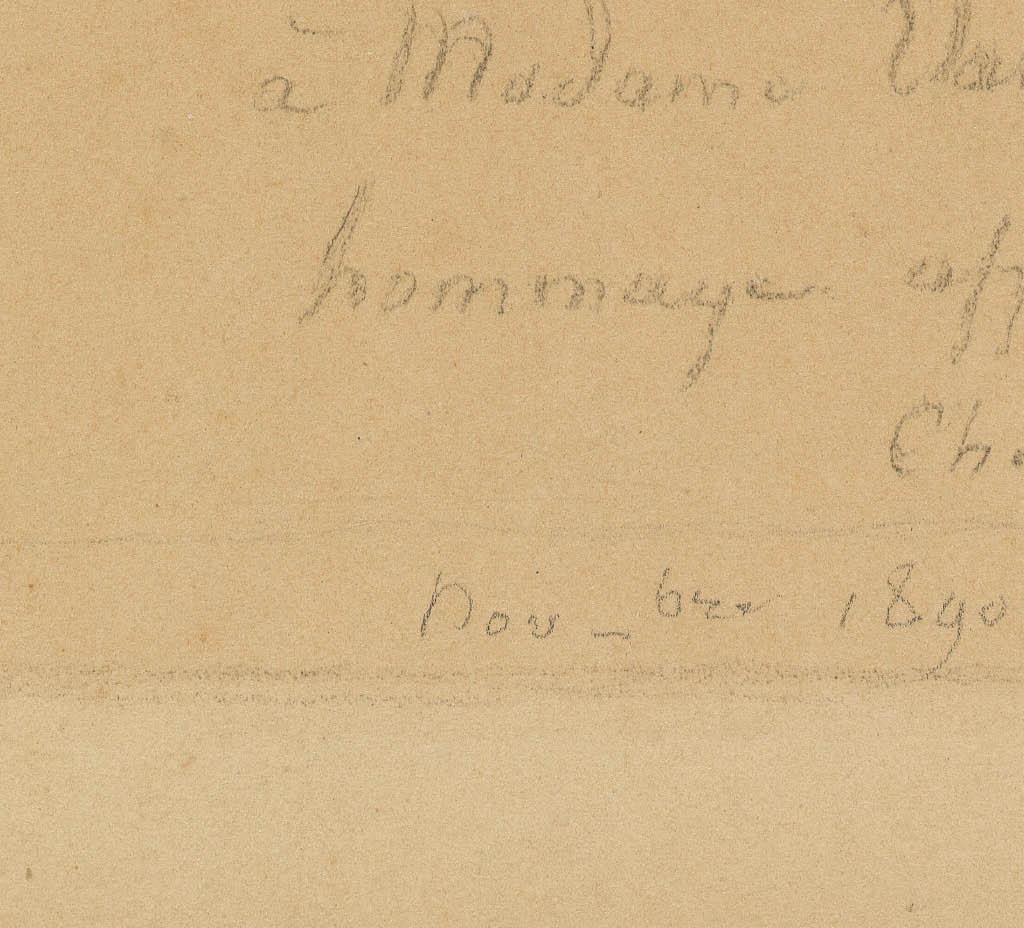 à Madame Va
hommage aff
Cha
nov_bre 1890